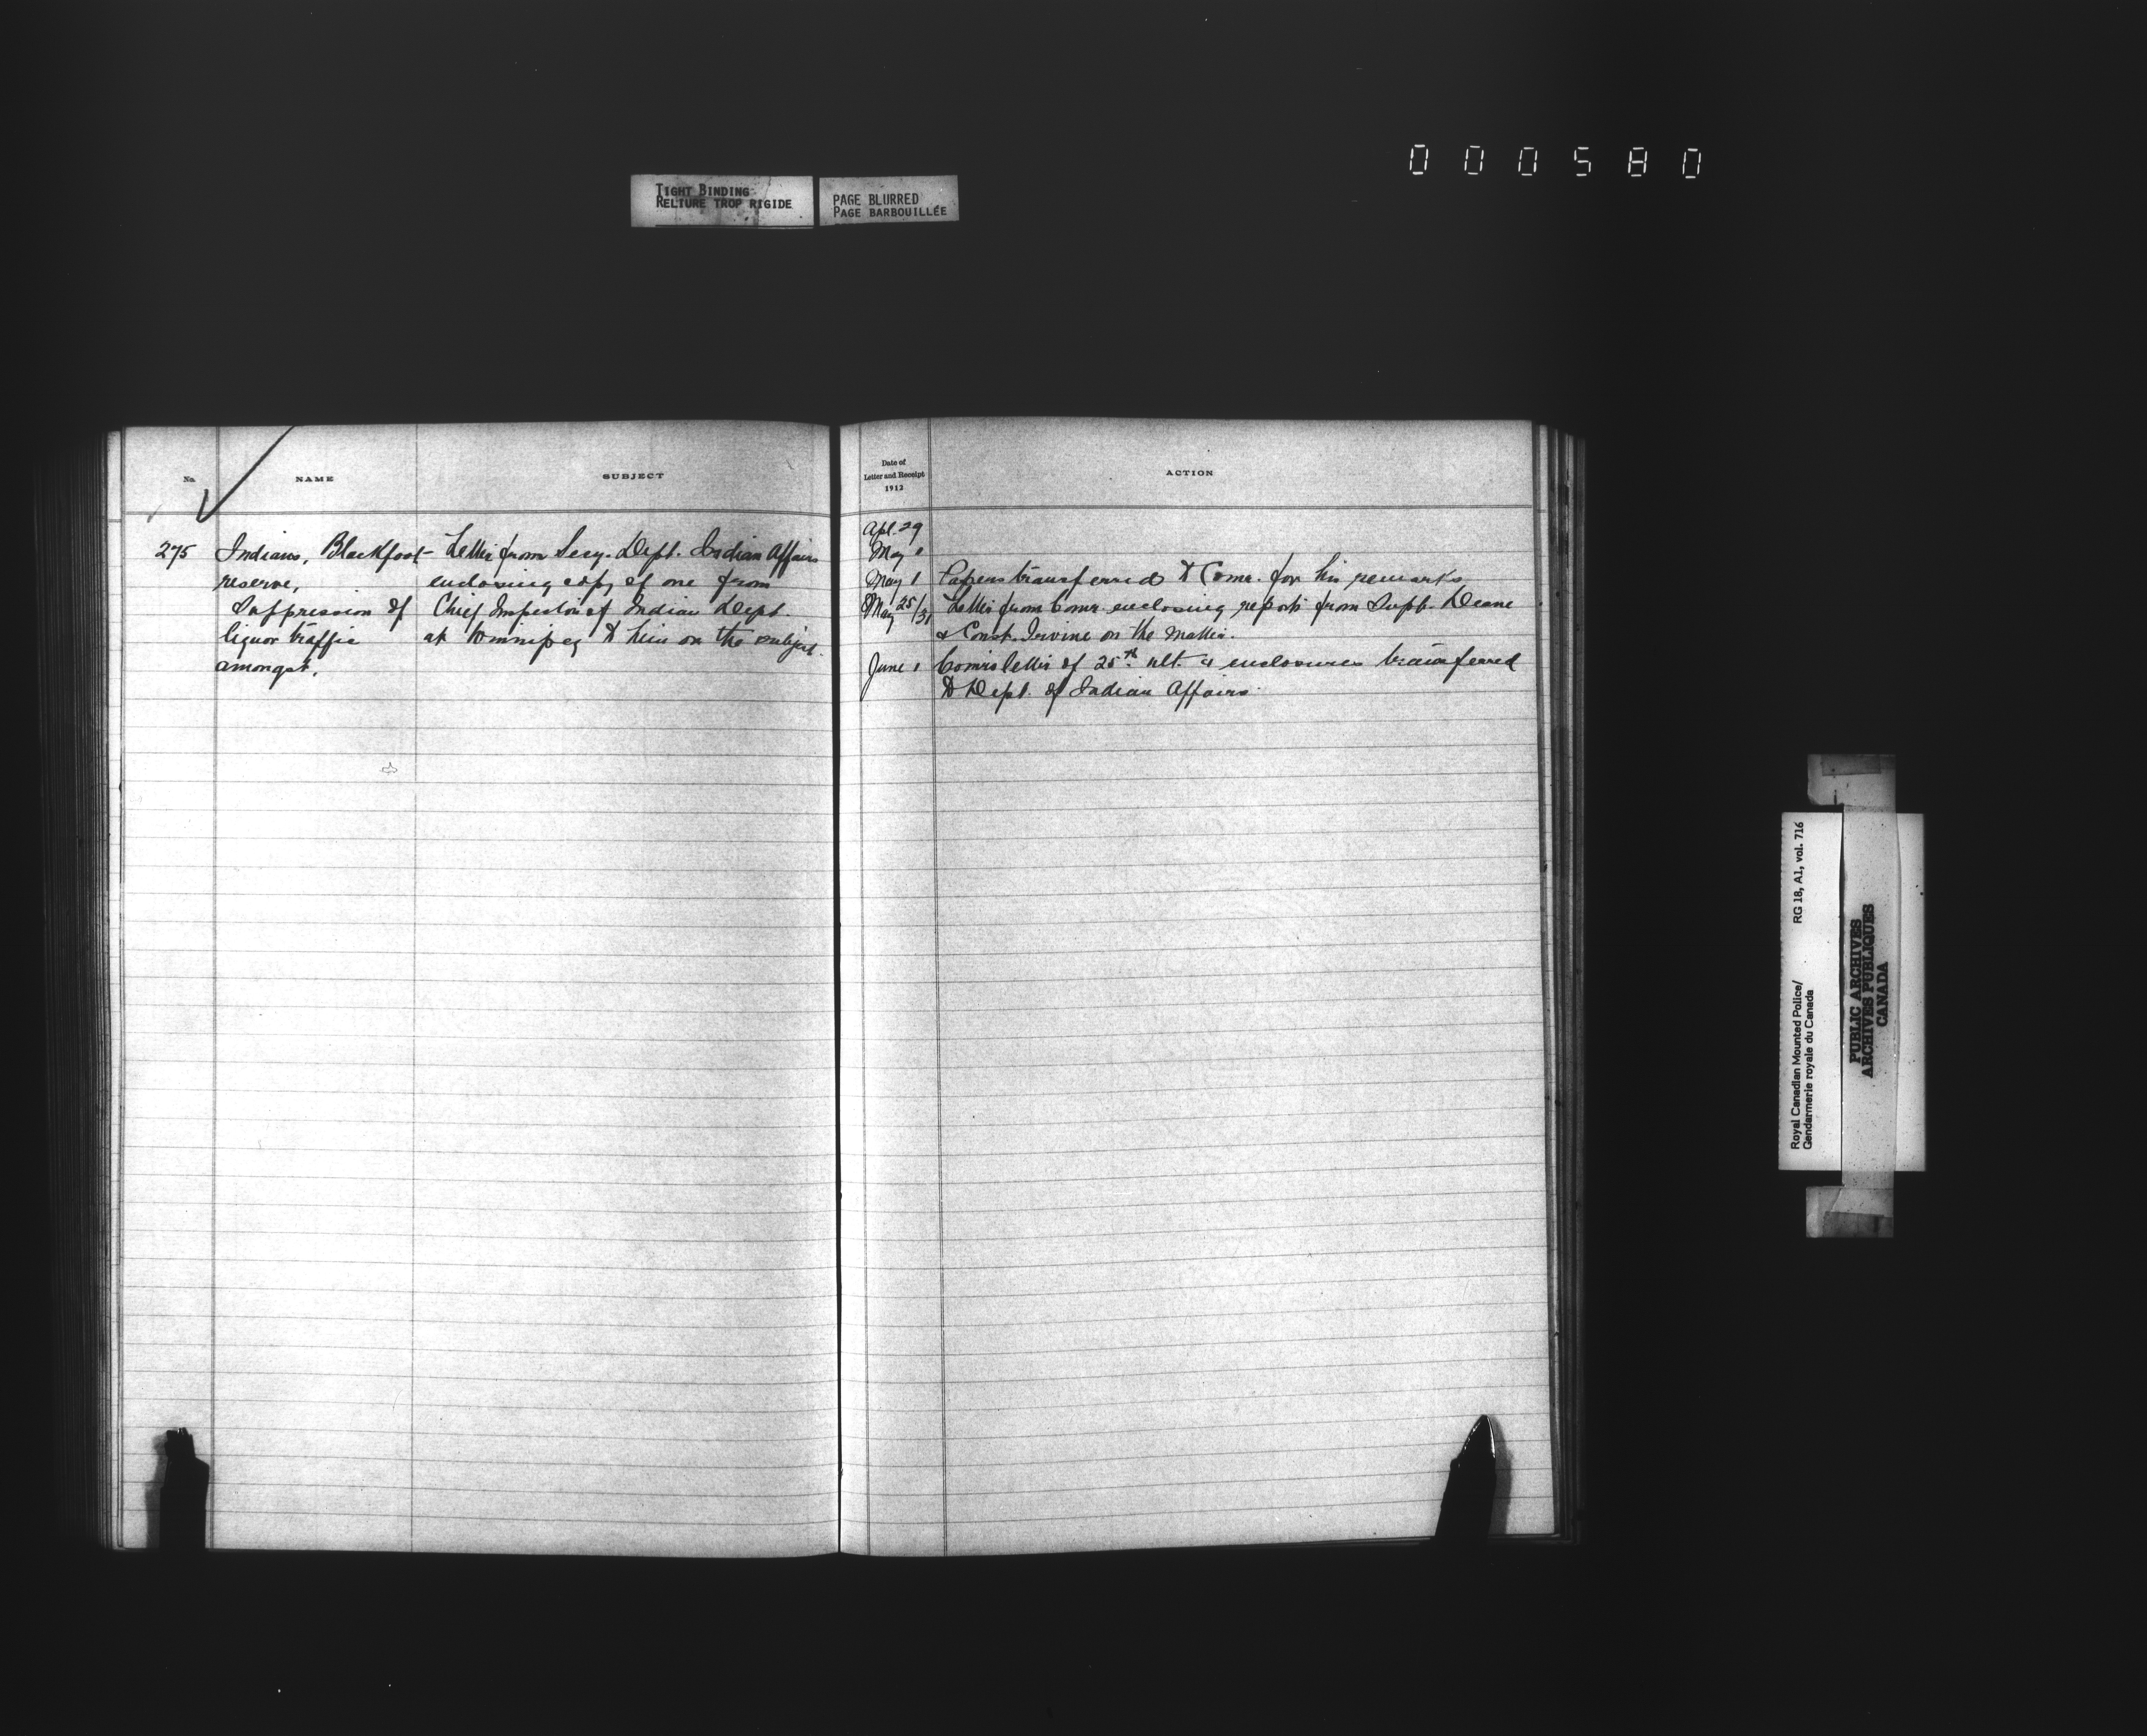 000580
TIGHT BINDING
RELIURE TROP RIGIDE
PAGE BLURRED
PAGE BARBOUILLÉE
No.
NAME
SUBJECT
Date of
Letter and Receipt
1912
ACTION
275
Indians, Blackfoot
reserve,
Suppression of
liquor traffic
amongst.
Letter from Secy. Dept. Indian Affairs
enclosing copy of one from
Chief Inspector of Indian Dept.
at Winnipeg to him on the subject.
Apl. 29
May 1
May 1 Papers transferred to Comr. for his remarks
May 25/31 Letter from Comr. enclosing reports from Supt. Deane
& Const. Irvine on the matter.
June 1 Comrs letter of 25th ult. & enclosures transferred
to Dept. of Indian Affairs.
Royal Canadian Mounted Police/
Gendarmerie royale du Canada
RG 18, A1, vol. 716
PUBLIC ARCHIVES
ARCHIVES PUBLIQUES
CANADA